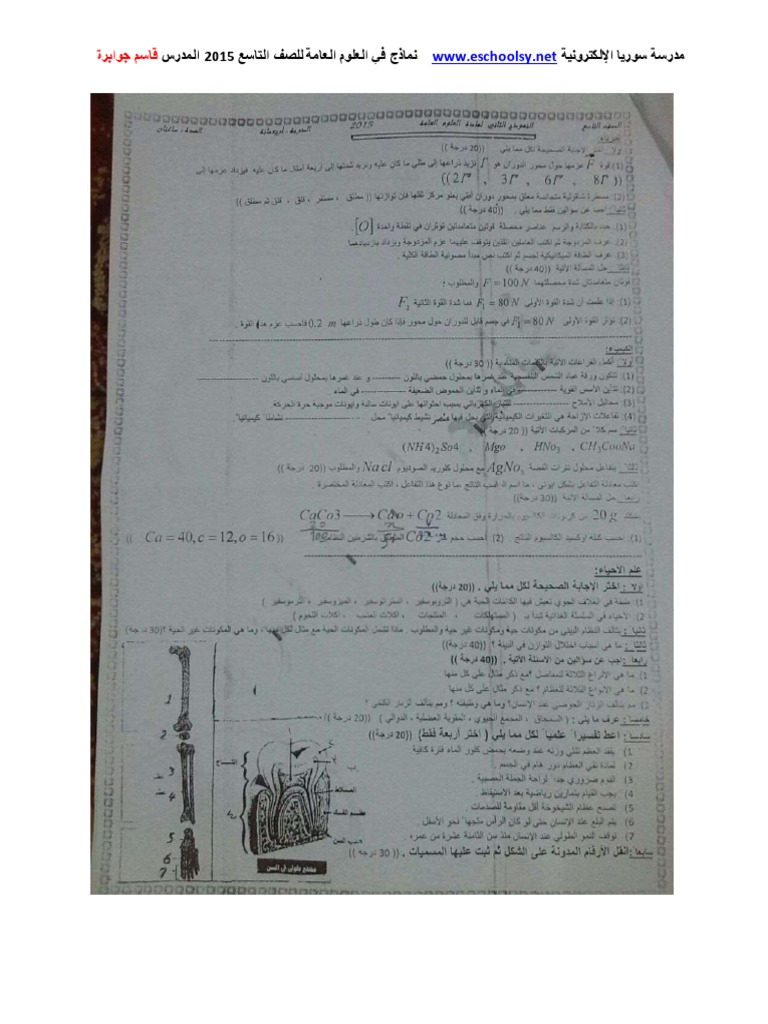 مدرسة سوريا الإلكترونية www.eschoolsy.net نماذج في العلوم العامة للصف التاسع 2015 المدرس قاسم جوابرة
الصف التاسع النموذج الثاني لمادة العلوم العامة 2015 المدة: ساعتان
فيزياء:
أولاً: اختر الإجابة الصحيحة لكل مما يلي ((20 درجة))
(1) قوة F عزمها حول محور الدوران هو Γ نزيد ذراعها إلى مثلي ما كان عليه ونزيد شدتها إلى أربعة أمثال ما كان عليه فيزداد عزمها إلى
((2Γ , 3Γ , 6Γ , 8Γ))
(2): مسطرة شاقولية متجانسة معلق بمحور دوران أفقي يعلو مركز ثقلها فإن توازنها ((مطلق ، مستقر ، قلق ، قلق ثم مطلق))
ثانياً: أجب عن سؤالين فقط مما يلي . ((40 درجة))
(1). حدد بالكتابة والرسم عناصر محصلة قوتين متعامدتين تؤثران في نقطة واحدة [O] .
(2). عرف المزدوجة ثم اكتب العاملين اللذين يتوقف عليهما عزم المزدوجة ويزداد بازديادهما
(3). عرف الطاقة الميكانيكية لجسم ثم اكتب نص مبدأ مصونية الطاقة الكلية .
ثالثاً: حل المسألة الآتية ((40 درجة))
قوتان متعامدتان شدة محصلتهما F = 100 N والمطلوب ؛
(1): إذا علمت أن شدة القوة الأولى F₁ = 80 N فما شدة القوة الثانية F₂
(2): تؤثر القوة الأولى F₁ = 80 N في جسم قابل للدوران حول محور فإذا كان طول ذراعها 0.2 m فاحسب عزم هذه القوة .
الكيمياء:
أولاً: أكمل الفراغات الآتية بالكلمات المناسبة ((30 درجة))
(1) تتكون ورقة عباد الشمس البنفسجية عند غمرها بمحلول حمضي باللون و عند غمرها بمحلول أساسي باللون
(2) تتأين الأسس القوية في الماء و تتأين الحموض الضعيفة في الماء .
(3) محاليل الأملاح للتيار الكهربائي بسبب احتوائها على ايونات سالبة وايونات موجبة حرة الحركة
(4) تفاعلات الإزاحة هي التغيرات الكيميائية التي يحل فيها عنصر نشيط كيميائياً محل نشاطاً كيميائياً
ثانياً: سم كلاً من المركبات الآتية ((20 درجة))
(NH4)₂So4 , Mgo , HNo₃ , CH₃CooNa
ثالثاً: يتفاعل محلول نترات الفضة AgNo₃ مع محلول كلوريد الصوديوم Nacl والمطلوب ((20 درجة))
اكتب معادلة التفاعل بشكل ايوني ، ما اسم الناتج ،ما نوع هذا التفاعل ، اكتب المعادلة المختصرة .
رابعاً: حل المسألة الآتية ((30 درجة))
20 g من كربونات الكالسيوم بالحرارة وفق المعادلة CaCo3 ⟶ Cao + Co2
(1). احسب كتلة أوكسيد الكالسيوم الناتج (2) أحسب حجم غاز Co2 بالشرطين النظاميين ((Ca = 40, c = 12, o = 16))
علم الاحياء:
أولا: اختر الإجابة الصحيحة لكل مما يلي . ((20 درجة))
(1: طبقة في الغلاف الجوي تعيش فيها الكائنات الحية هي ( التروبوسفير ، الستراتوسفير ، الميزوسفير ، الثرموسفير )
(2: الأحياء في السلسلة الغذائية تبدأ بـ ( المفككات ، المنتجات ، آكلات العشب ، آكلات اللحوم )
ثانيا: يتألف النظام البيئي من مكونات حية ومكونات غير حية والمطلوب ماذا تشمل المكونات الحية مع مثال لكل منها ، وما هي المكونات غير الحية ؟(30 درجة)
ثالثا: ما هي أسباب اختلال التوازن في البيئة ؟ ((40 درجة))
رابعا: اجب عن سؤالين من الاسئلة الآتية . ((40 درجة))
(1 ما هي الأنواع الثلاثة للمفاصل ؟مع ذكر مثال على كل منها
(2 ما هي الأنواع الثلاثة للعظام ؟ مع ذكر مثال على كل منها
(3 مم يتألف الزنار الحوضي عند الإنسان؟ وما هي وظيفته ؟ ومم يتألف الزنار الكتفي ؟
خامسا: عرف ما يلي : ( السمحاق ، المجمع الحيوي ، المقوية العضلية ، الدوالي ) ((20 درجة))
سادسا: اعط تفسيراً علمياً لكل مما يلي { اختر أربعة فقط} ((20 درجة))
(1 يفقد العظم ثلثي وزنه عند وضعه بحمض كلور الماء فترة كافية
(2 لمادة نقي العظام دور هام في الجسم .
(3 النوم ضروري جداً لراحة الجملة العصبية .
(4 يجب القيام بتمارين رياضية بعد الاستيقاظ .
(5 تصبح عظام الشيخوخة أقل مقاومة للصدمات .
(6 يتم البلع عند الإنسان حتى لو كان الرأس متجهاً نحو الأسفل .
(7 توقف النمو الطولي عند الإنسان منذ سن الثامنة عشرة من عمره .
سابعا: انقل الأرقام المدونة على الشكل ثم ثبت عليها المسميات . ((30 درجة))
1
2
3
4
5
6
7
التاج
عظم الفك
مقطع طولي في السن